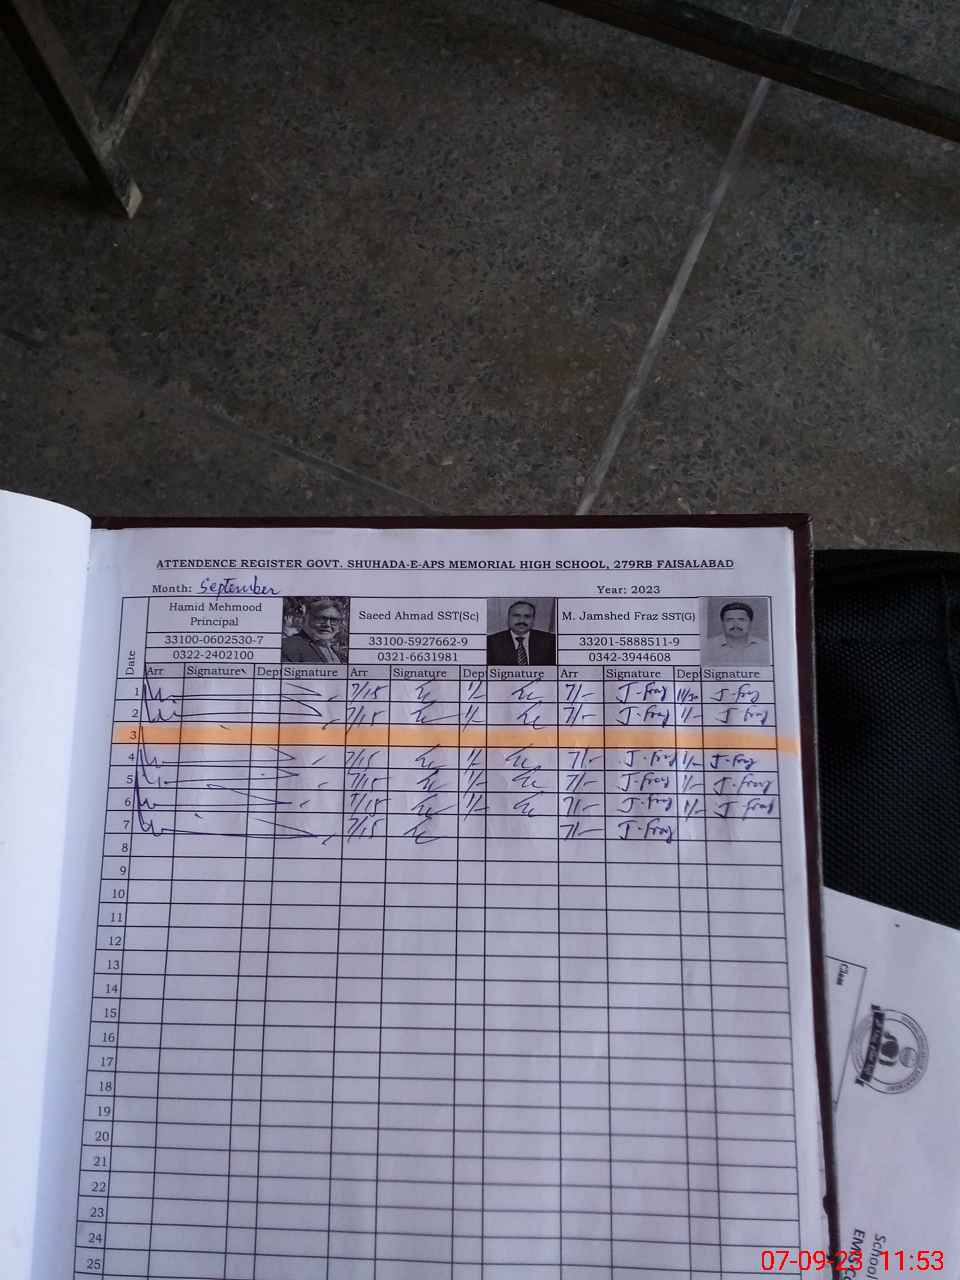 ATTENDENCE REGISTER GOVT. SHUHADA-E-APS MEMORIAL HIGH SCHOOL, 279RB FAISALABAD
Month: September Year: 2023
Date
Hamid Mehmood
Principal
33100-0602530-7
0322-2402100
Saeed Ahmad SST(Sc)
33100-5927662-9
0321-6631981
M. Jamshed Fraz SST(G)
33201-5888511-9
0342-3944608
Arr Signature Dep Signature Arr Signature Dep Signature Arr Signature Dep Signature
1 7/15 1/- 7/- J-fraz 11/30 J-fraz
2 7/15 1/- 7/- J-fraz 1/- J-fraz
3
4 7/15 1/- 7/- J-fraz 1/- J-fraz
5 7/15 1/- 7/- J-fraz 1/- J-fraz
6 7/15 1/- 7/- J-fraz 1/- J-fraz
7 7/15 7/- J-fraz
8
9
10
11
12
13
14
15
16
17
18
19
20
21
22
23
24
25
Class
School
07-09-23 11:53